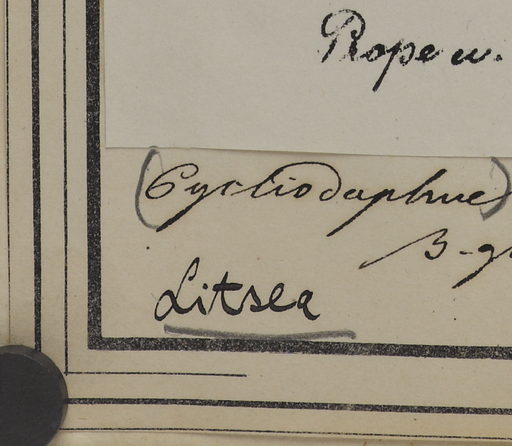 Prope u.
(Cycliodaphne)
B-g
Litsea